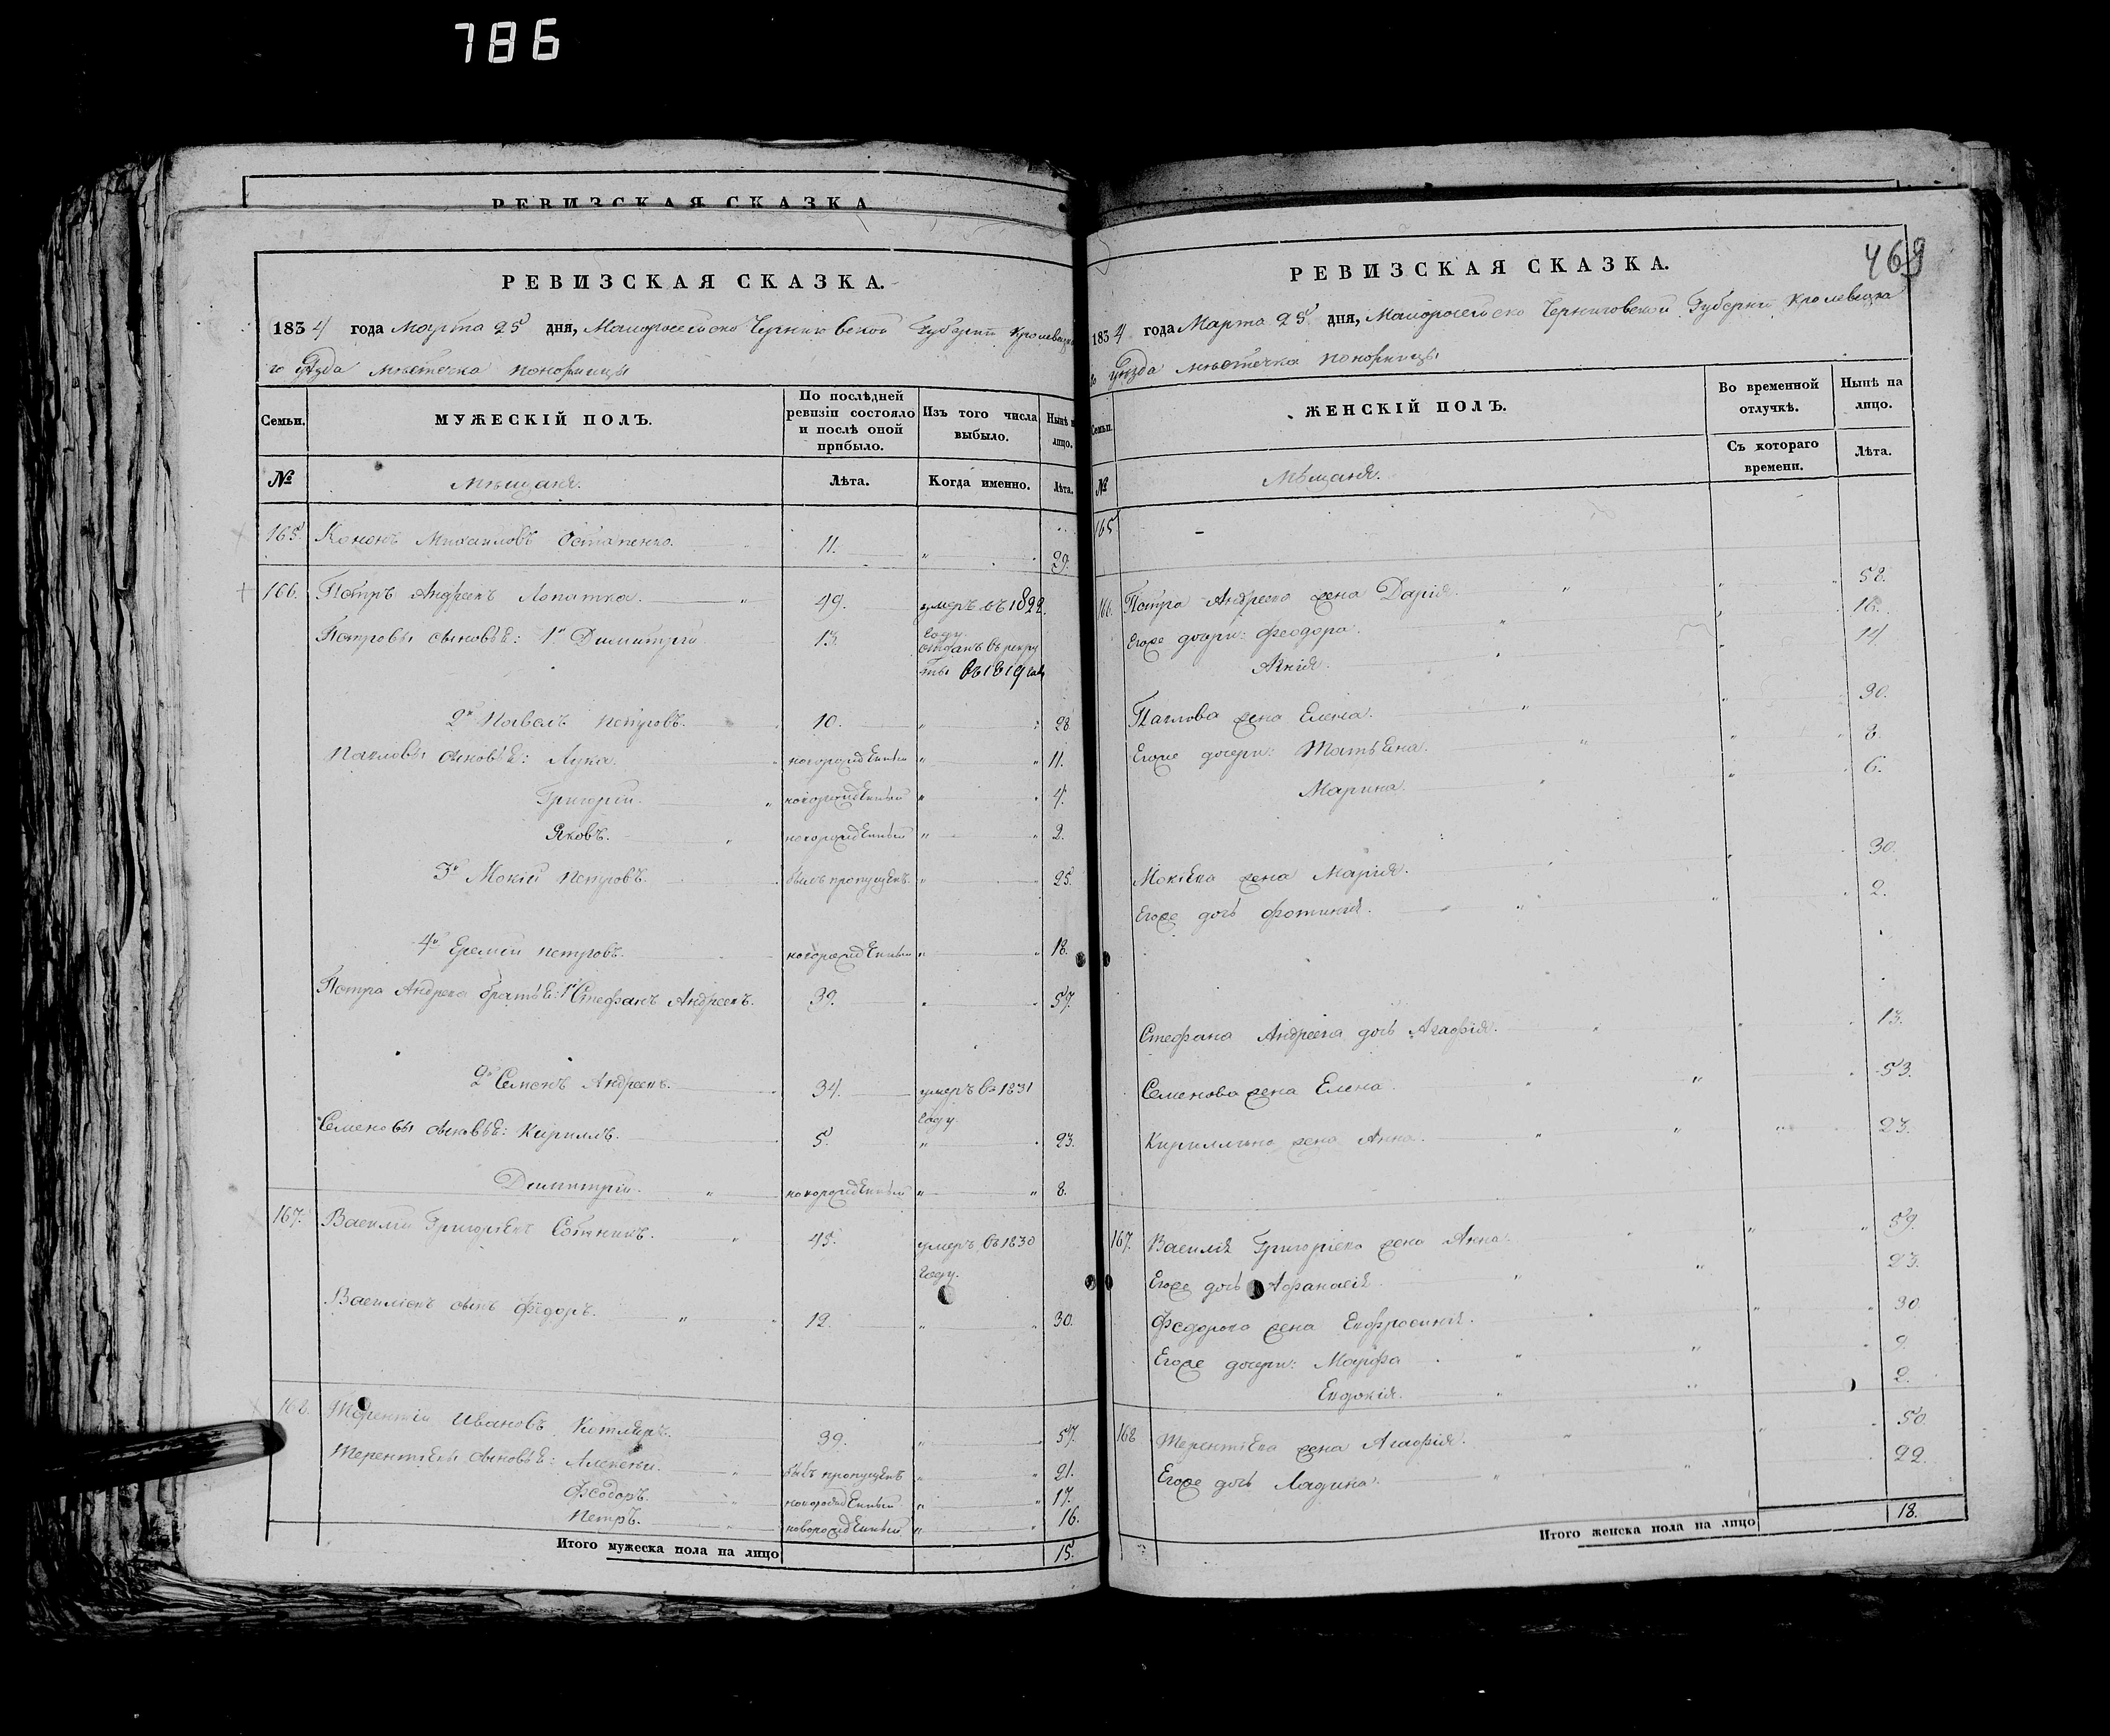 786
РЕВИЗСКАЯ СКАЗКА
РЕВИЗСКАЯ СКАЗКА.
1834 года Марта 25 дня, Малоросейско Черниговской Губерніи Кролевецка
го уѣзда мѣстечка Понорницы
Семьи. МУЖЕСКІЙ ПОЛЪ. По послѣдней ревизіи состояло и послѣ оной прибыло. Изъ того числа выбыло. Нынѣ на лицо.
№ Мѣщанѣ. Лѣта. Когда именно. Лѣта.
165. Кононъ Михаиловъ Остапенко. 11. " 29.
166. Петръ Андреевъ Лопатка. 49. умеръ въ 1822.
году.
Петровы сыновья: 1й Димитрій 13. отданъ въ рекру
ты въ 1819 году
2й Павелъ Петровъ. 10. " 28
Павловы сыновья: Лука. новорожденный " 11.
Григорій. новорожденный " 4.
Яковъ. новорожденный " 2.
3й Мокій Петровъ. былъ пропущенъ. " 25.
4й Еремей Петровъ. новорожденный " 18.
Петра Андреева братья: 1й Стефанъ Андреевъ. 39. " 57.
2й Семенъ Андреевъ. 34. умеръ въ 1831
году.
Семеновы сыновья: Кириллъ. 5. " 23.
Димитрій. новорожденный " 8.
167. Василій Григорьевъ Сотникъ. 45. умеръ въ 1830
году.
Васильевъ сынъ Федоръ. 12. " 30.
168. Терентій Ивановъ Котляръ. 39. " 57.
Терентьевы сыновья: Алексей. былъ пропущенъ " 21.
Феодоръ. новорожденный " 17.
Петръ. новорожденный " 16.
Итого мужеска пола на лицо 15.
469
РЕВИЗСКАЯ СКАЗКА.
1834 года Марта 25 дня, Малоросейско Черниговской Губерніи Кролевецка
го уѣзда мѣстечка Понорницы
Семьи. ЖЕНСКІЙ ПОЛЪ. Во временной отлучкѣ. Нынѣ на лицо.
№ Мѣщанѣ. Съ котораго времени. Лѣта.
165 -
166. Петра Андреева жена Дарія. " 58.
Егоже дочери: Феодора. " 16.
Агнія. " 14
Павлова жена Елена. " 30.
Егоже дочери: Татьяна. " 8.
Марина. " 6.
Мокіева жена Марія. " 30.
Егоже дочь Фотинія. " 2.
Стефана Андреева дочь Агафія. " 13.
Семенова жена Елена. " 53.
Кириллина жена Анна. " 23.
167. Василія Григоріева жена Анна. " 59.
Егоже дочь Афанасія " 23.
Федорова жена Евфросинія. " 30
Егоже дочери: Марфа. " 9.
Евдокія. " 2.
168 Терентіева жена Агафія. " 50.
Егоже дочь " 22.
Итого женска пола на лицо 18.